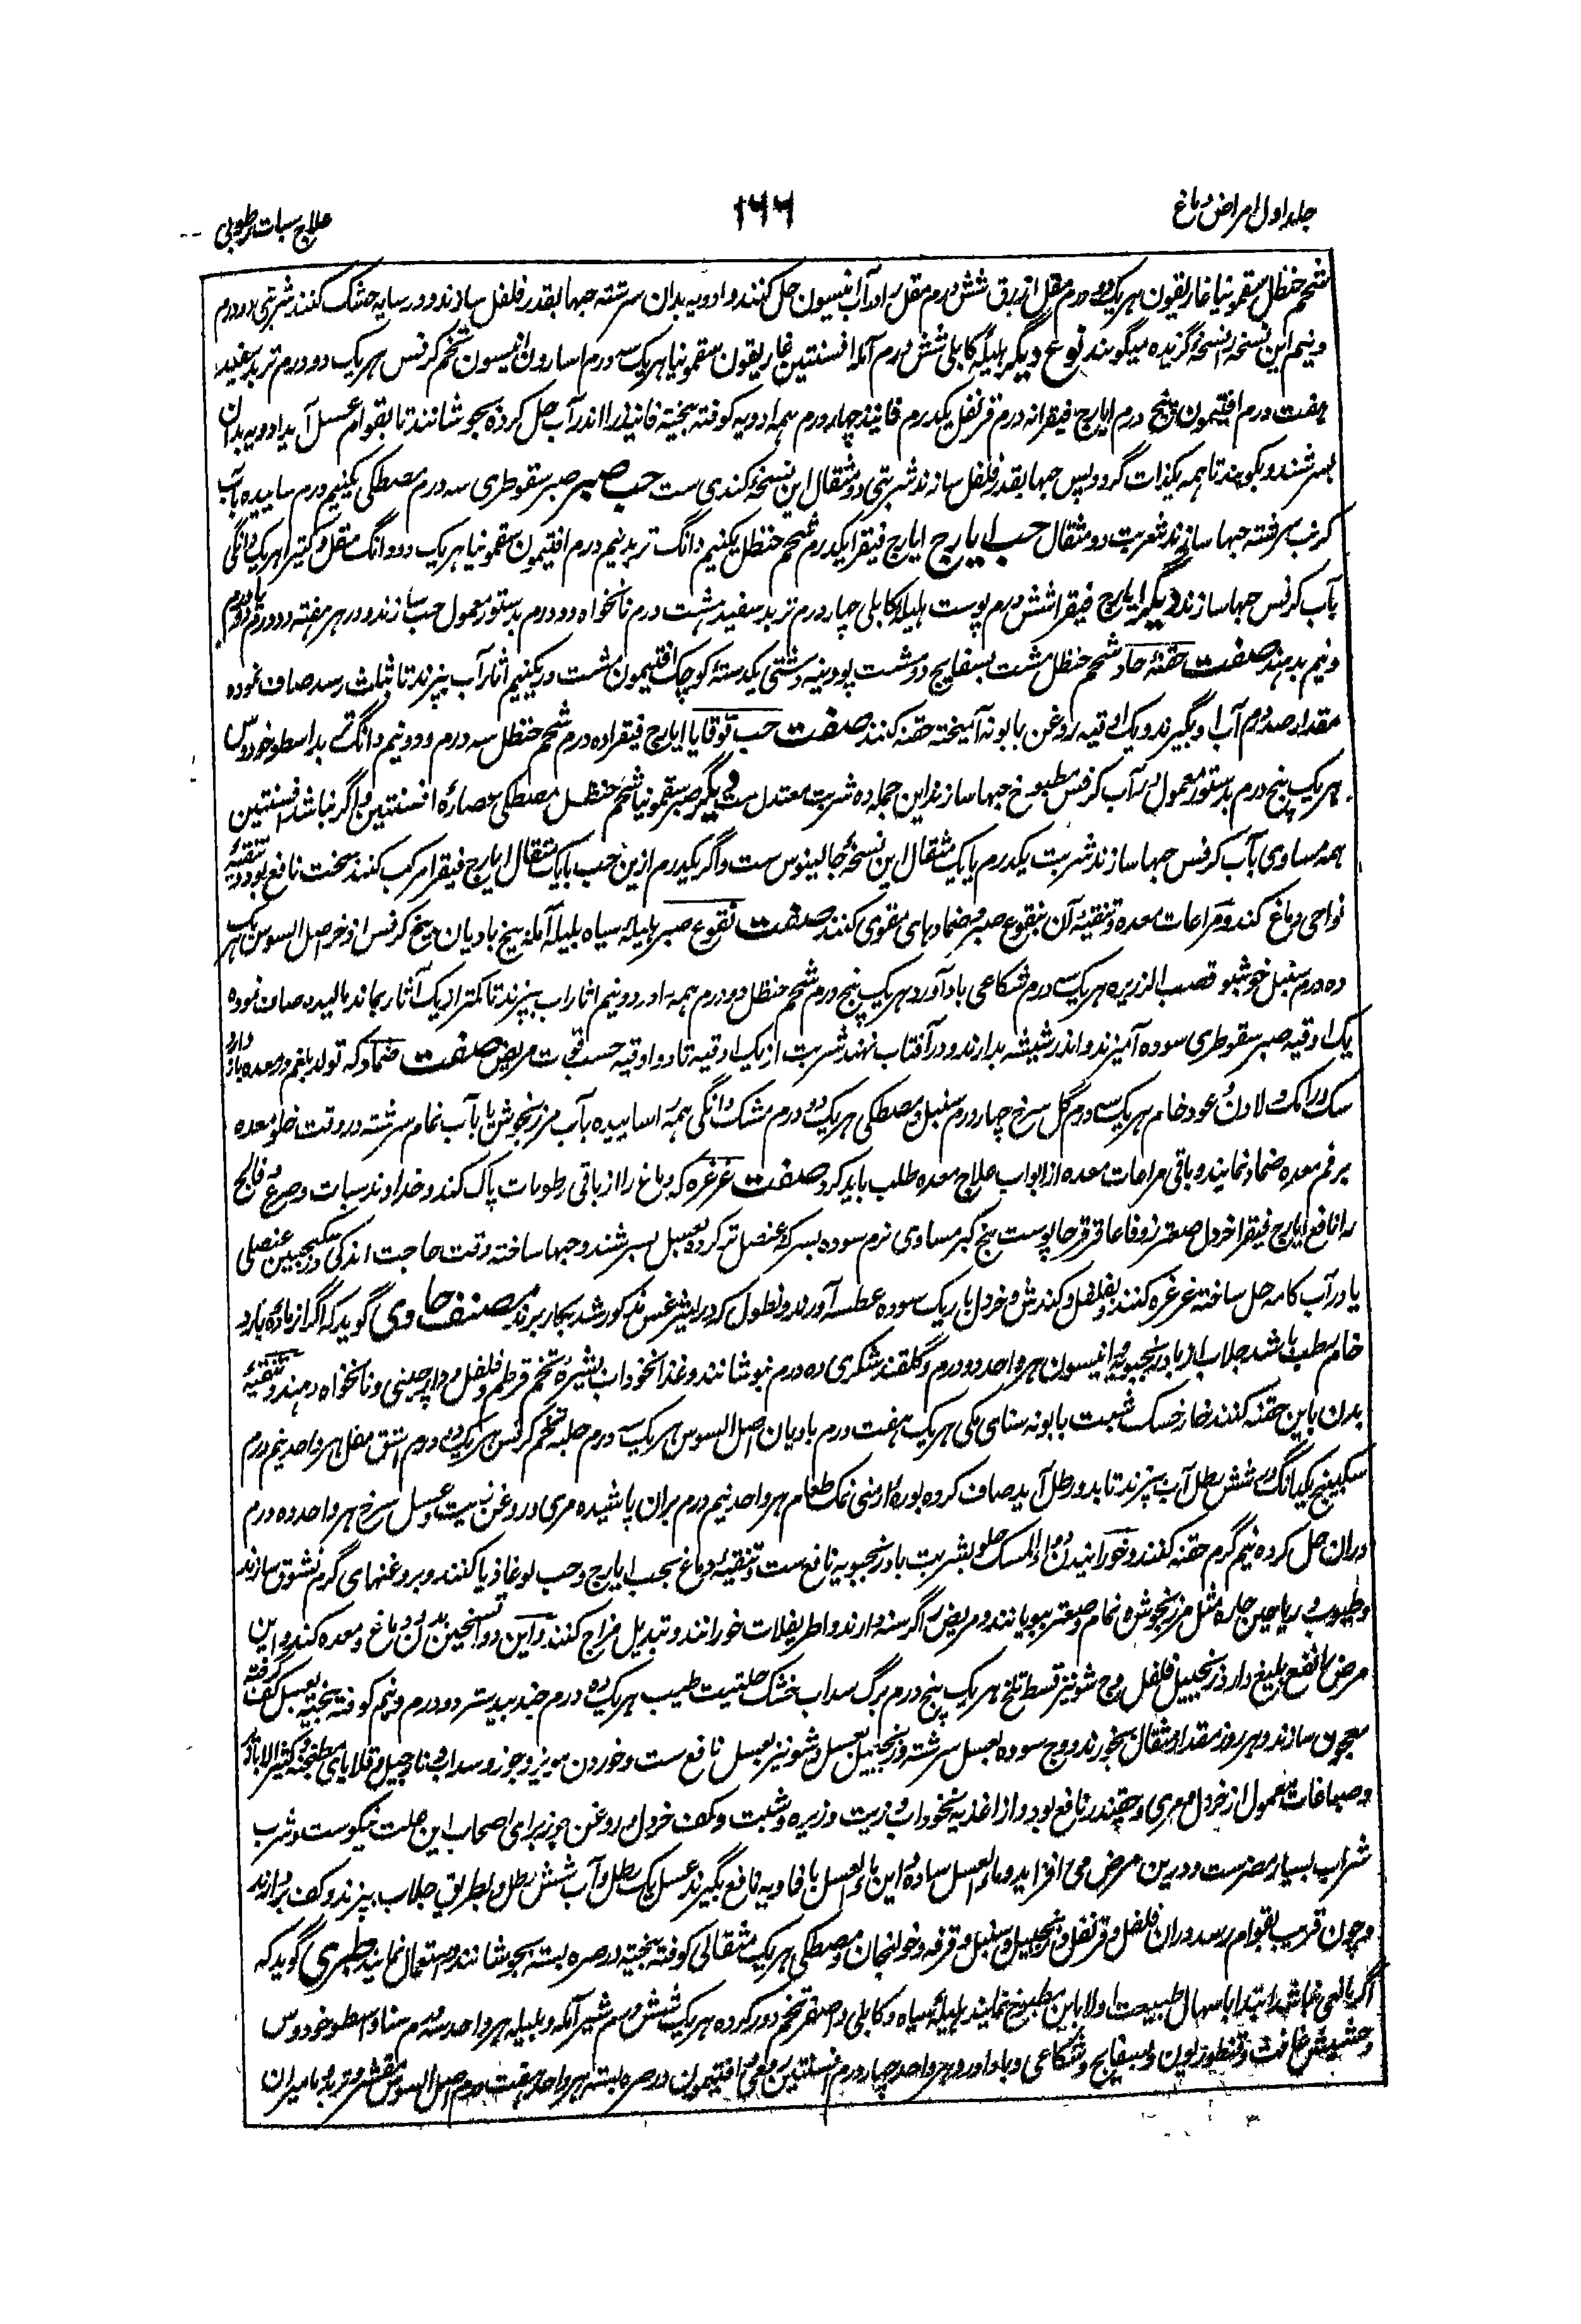 جلد اول امراض دماغ
۱۶۶
علاج سبات رطوبی
شحم حنظل سقمونیا غاریقون هر یک دو درم مقل ازرق شش درم مقل را در آب انیسون حل کنند و ادویه بدان سرشته حبها بقدر فلفل سازند و در سایه خشک کنند شربتی دو درم
و نیم این نسخه را نسخهٔ گزیده میگویند نوع دیگر هلیلهٔ کابلی شش درم آمله افسنتین غاریقون سقمونیا هر یک سه درم اسارون انیسون تخم کرفس هر یک دو درم تربد سفید
هفت درم افتیمون پنج درم ایارج فیقرا نه درم قرنفل یکدرم فانیذ چهار درم همه ادویه کوفته بیخته فانیذ را اندر آب حل کرده بجوشانند تا بقوام عسل آید ادویه بدان
بسرشند و بکوبند تا همه یکذات گردد پس حبها بقدر فلفل سازند شربتی دو مثقال این نسخهٔ کندی ست حب صبر صبر سقوطری سه درم مصطکی یکنیم درم ساییده بآب
کرنب سرشته حبها سازند شربت دو مثقال حب ایارج ایارج فیقرا یکدرم شحم حنظل یکنیم دانگ تربد نیم درم افتیمون سقمونیا هر یک دو دانگ مقل و کتیرا هر یک دانگی
بآب کرفس حبها سازند دیگر ایارج فیقرا شش درم پوست هلیلهٔ کابلی چهار درم تربد سفید هشت درم نانخواه دو درم بدستور معمول حب سازند و در هر هفته دو درم یا دو درم
و نیم بدهند صفت حقنهٔ حاد شحم حنظل مشت بسفایج دو مشت پودینه دشتی یکدسته کوچک افتیمون مشت در یکنیم اثار آب بپزند تا ثلث رسد صاف نموده
مقدار صد درم آب او بگیرند و یک اوقیه روغن بابونه آمیخته حقنه کنند صفت حب قوقایا ایارج فیقرا ده درم شحم حنظل سه درم و دو نیم دانگ تربد اسطوخودوس
هر یک پنج درم بدستور معمول بآب کرفس مطبوخ حبها سازند این جمله ده شربت معتدل ست دیگر صبر سقمونیا شحم حنظل مصطکی عصارهٔ افسنتین و اگر نباشد افسنتین
همه مساوی بآب کرفس حبها سازند شربت یکدرم یا یک مثقال این نسخهٔ جالینوس ست و اگر یکدرم ازین حب با یک مثقال ایارج فیقرا مرکب کنند سخت نافع بود و تنقیهٔ
نواحی دماغ کند و مراعات معده و تنقیهٔ آن بنقوع صبر و ضمادهای مقوی کنند صفت نقوع صبر هلیله سیاه بلیله آمله بیخ بادیان بیخ کرفس اذخر اصل السوس هر یک
ده درم سنبل خوشبو قصب الذریره هر یک سه درم شکاعی باد آورد هر یک پنج درم شحم حنظل دو درم همه را در دو نیم اثار آب بپزند تا کمتر از یک آثار بماند مالیده صاف نموده
یک اوقیه صبر سقوطری سوده آمیزند و اندر شیشه بدارند و در آفتاب نهند شربت از یک اوقیه تا دو اوقیه حسب قوت مریض صفت ضماد که تولد بلغم در معده باز دارد
سک و رامک و لادن و عود خام هر یک سه درم گل سرخ چهار درم سنبل و مصطکی هر یک دو درم مشک دانگی همه را ساییده بآب مرزنجوش یا بآب نمام سرشته در وقت خلو معده
بر فم معده ضماد نمایند و باقی مراعات معده از ابواب علاج معده طلب باید کرد صفت غرغره که دماغ را از باقی رطوبات پاک کند و خداوند سبات و صرع و فالج
را نافع ایارج فیقرا خردل صعتر زوفا عاقرقرحا پوست بیخ کبر مساوی نرم سوده بسرکه عنصل تر کرده بعسل بسرشند و حبها ساخته وقت حاجت اندکی در سکنجبین عنصلی
یا در آب کامه حل ساخته غرغره کنند و بفلفل و کندش و خردل باریک سوده عطسه آورند و نطول که در لیثرغس مذکور شد بکار برند مصنف حاوی گوید که اگر از مادهٔ بارد
خام رطب باشد جلاب از بادرنجبویه و انیسون هر واحد دو درم و گلقند شکری ده درم بنوشانند و غذا نخوداب بشیرهٔ تخم قرطم و فلفل و دارچینی و نانخواه دهند و تنقیهٔ
بدن باین حقنه کنند خارخسک شبت بابونه سنای مکی هر یک هفت درم بادیان اصل السوس هر یک سه درم حلبه تخم کرفس هر یک دو درم اشق مقل هر واحد نیم درم
سکبینج یکدانگ در شش رطل آب بپزند تا بدو رطل آید صاف کرده بورهٔ ارمنی نمک طعام هر واحد نیم درم بران پاشیده مری و روغن زیت و عسل سرخ هر واحد ده درم
دران حل کرده نیم گرم حقنه کنند و خورانیدن دواء المسک حلو بشربت بادرنجبویه نافع ست و تنقیهٔ دماغ بحب ایارج و حب لوغاذیا کنند و بروغنهای گرم نشوق سازند
و طیوب و ریاحین حاره مثل مرزنجوش و نمام و صعتر ببویانند و مریض را گرسنه دارند و اطریفلات خورانند و تبدیل مزاج کنند و این دوا تسخین بدن و دماغ و معده کند و این
مرض را نفع بلیغ دارد زنجبیل فلفل وج شونیز قسط تلخ هر یک پنج درم برگ سداب خشک حلتیت طیب هر یک ده درم جندبیدستر دو درم و نیم کوفته بیخته بعسل کف گرفته
معجون سازند و هر روز مقدار مثقال بخورند و وج سوده بعسل سرشته و زنجبیل بعسل و شونیز بعسل نافع ست و خوردن مویز و جوز و سداب و نارجیل و قلایای مطجنه و کثیر الابازیر
و صباغات معمول از خردل و مری و چقندر نافع بود و از اغذیه نخوداب و زیت و زیره و شبت و کف خردل و روغن جوز برای اصحاب این علت نیکوست و شرب
شراب بسیار مضرست و درین مرض می افزاید و ماء العسل ساده و این ماء العسل بافاویه نافع بگیرند عسل یک رطل و آب شش رطل و بطریق جلاب بپزند و کف بردارند
و چون قریب بقوام رسد دران فلفل و قرنفل و زنجبیل و سنبل و قرفه و خولنجان و مصطکی هر یک مثقالی کوفته بیخته در صره بسته بجوشانند و استعمال نمایند طبری گوید که
اگر مانعی نباشد ابتدا باسهال طبیعت اولا باین مطبوخ نمایند هلیلهٔ سیاه و کابلی و اصفر تخم دور کرده هر یک شش درم شیر آمله و بلیله هر واحد سه درم سنا و اسطوخودوس
و حشیش غافث و قنطوریون و بسفایج و شکاعی و باد آورد هر واحد چهار درم افسنتین رومی و افتیمون در صره بسته هر واحد هفت درم اصل السوس مقشر و تربد و مامیران